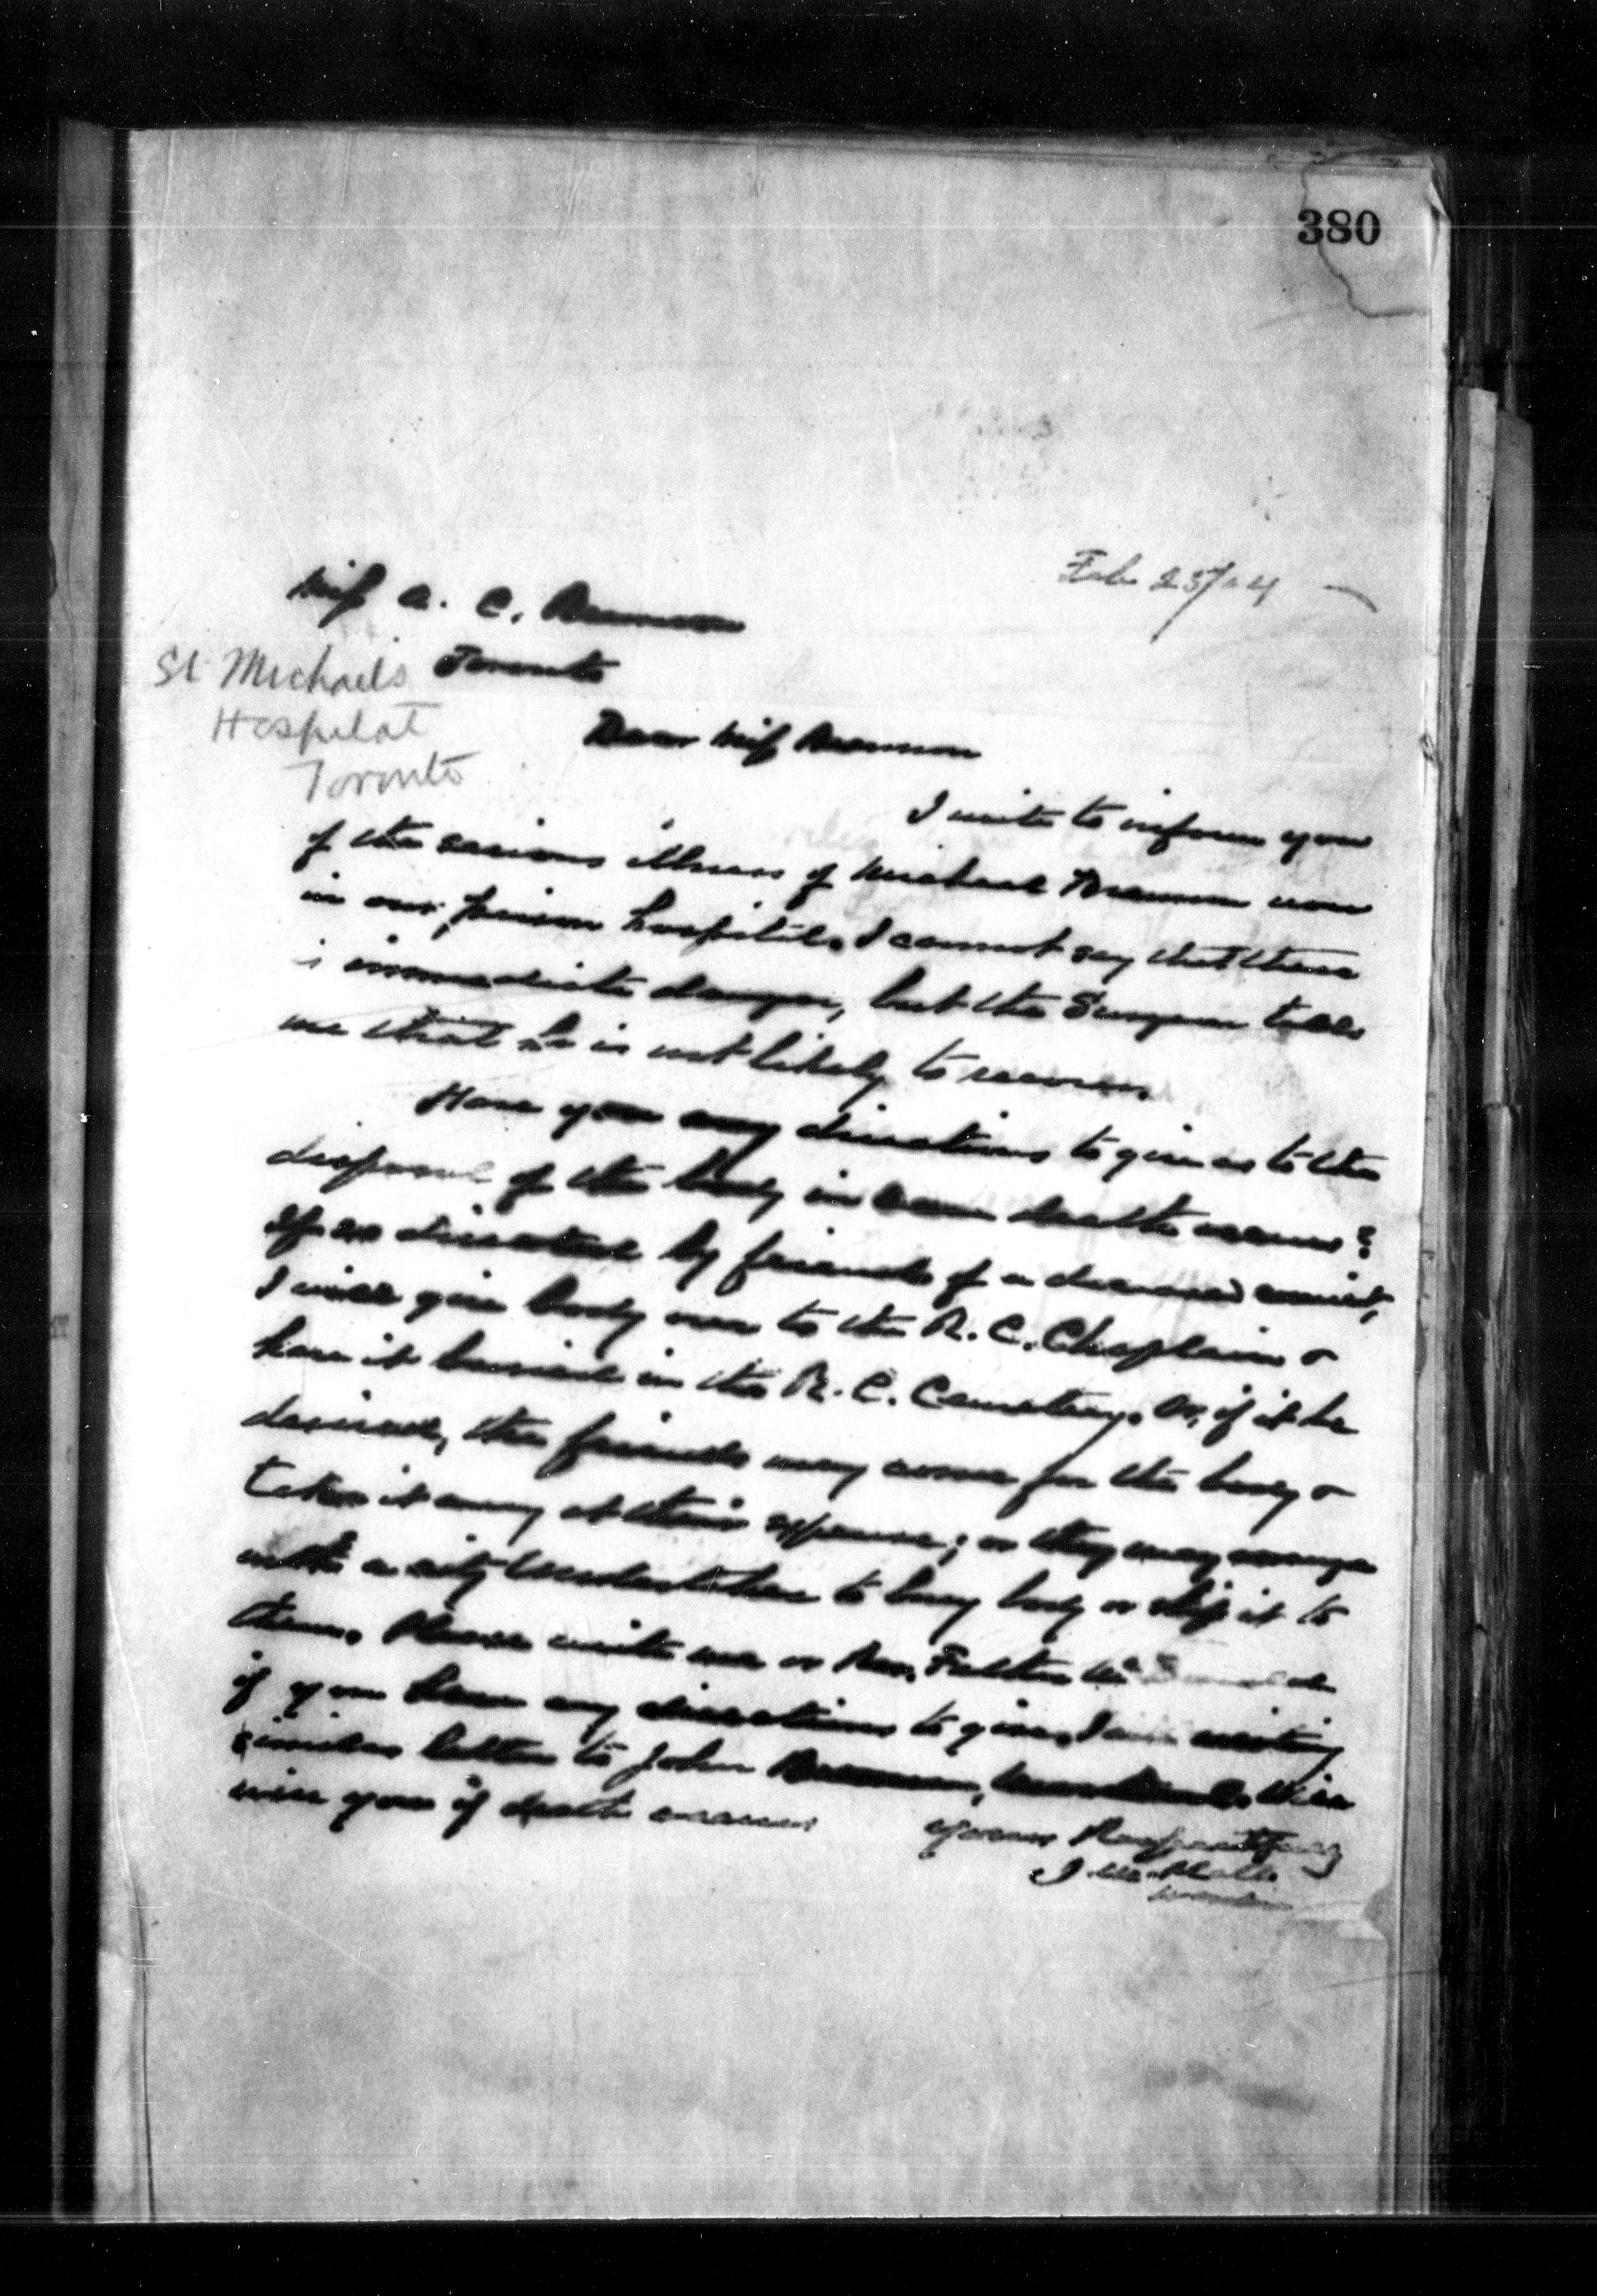 380
Feb 23/04
Miss A. C. Brennan
Toronto
St Michaels
Hospital
Toronto
Dear Miss Brennan
I write to inform you
of the serious illness of Michael Brennan now
in our prison hospital. I cannot say that there
is immediate danger, but the Surgeon tells
me that he is not likely to recover.
Have you any directions to give as to the
disposal of the body in case death occurs?
If so directed by friends of a deceased convict,
I will give body over to the R. C. Chaplain &
have it buried in the R. C. Cemetery. Or, if it be
desired, the friends may come for the body &
take it away at their expense; or they may arrange
with a city Undertaker to bury body or ship it to
them. Please write me or Rev. Father
if you have any directions to give. I am writing
similar letter to John Brennan, Will
wire you if death occurs
Yours Respectfully
J. M. Platt
Warden